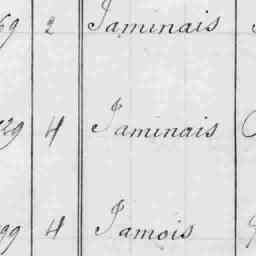 69 2 Jaminais
129 4 Jaminais
99 4 Jamois